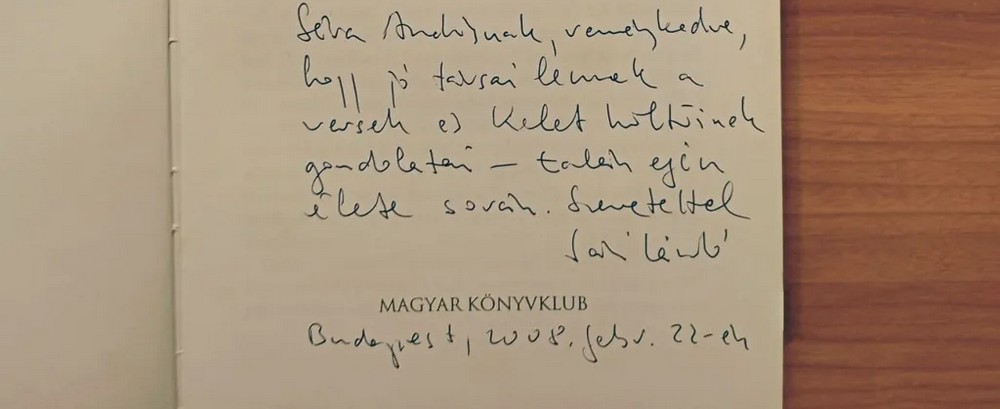 Séra Andrásnak, reménykedve,
hogy jó társai lennek a
versek és Kelet költőinek
gondolatai – talán egin
élete során. Szeretettel
Sári László
MAGYAR KÖNYVKLUB
Budapest, 2008. febr. 22-én